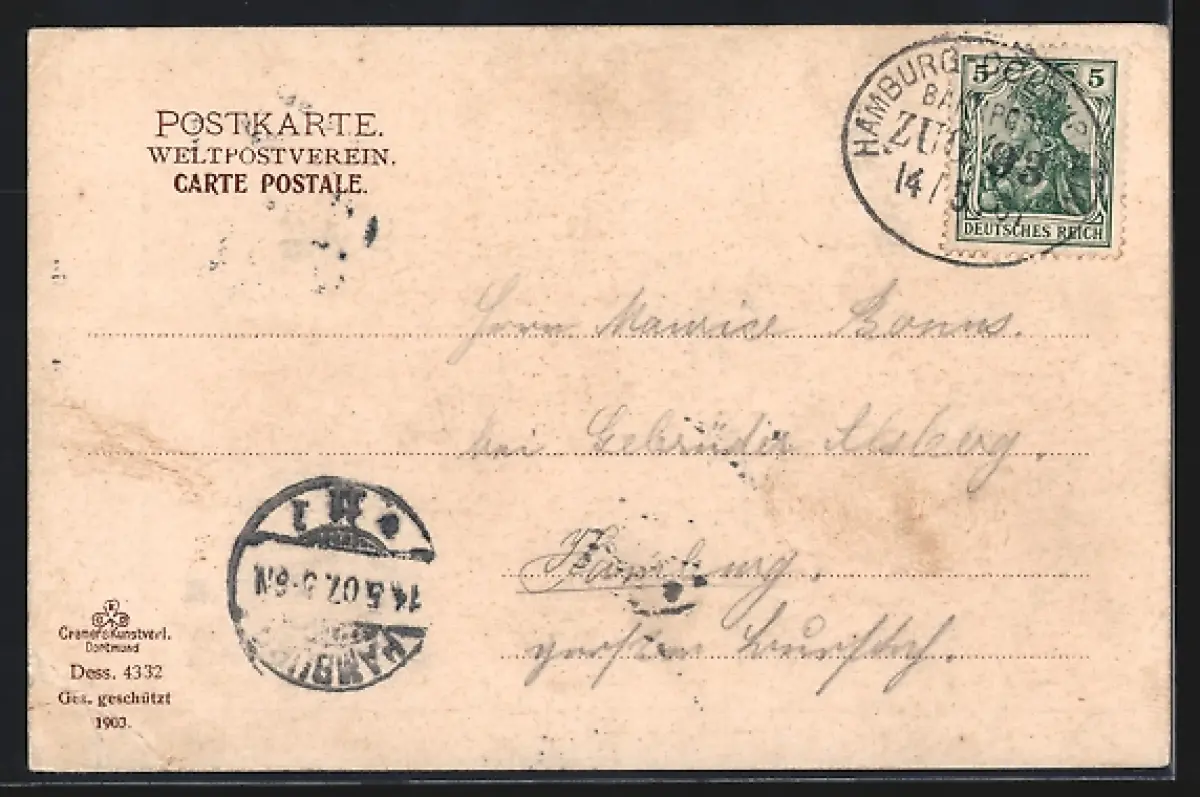 POSTKARTE.
WELTPOSTVEREIN.
CARTE POSTALE.
HAMBURG
BAHNPOST
ZUG 93
14 / 5 07
5 5
DEUTSCHES REICH
Herrn Maurice Bonns.
bei Gebrüder Alsberg,
Hamburg,
14.5.07. 5-6N
HAMBURG
Cramers Kunstverl.
Dortmund
Dess. 4332
Ges. geschützt
1903.